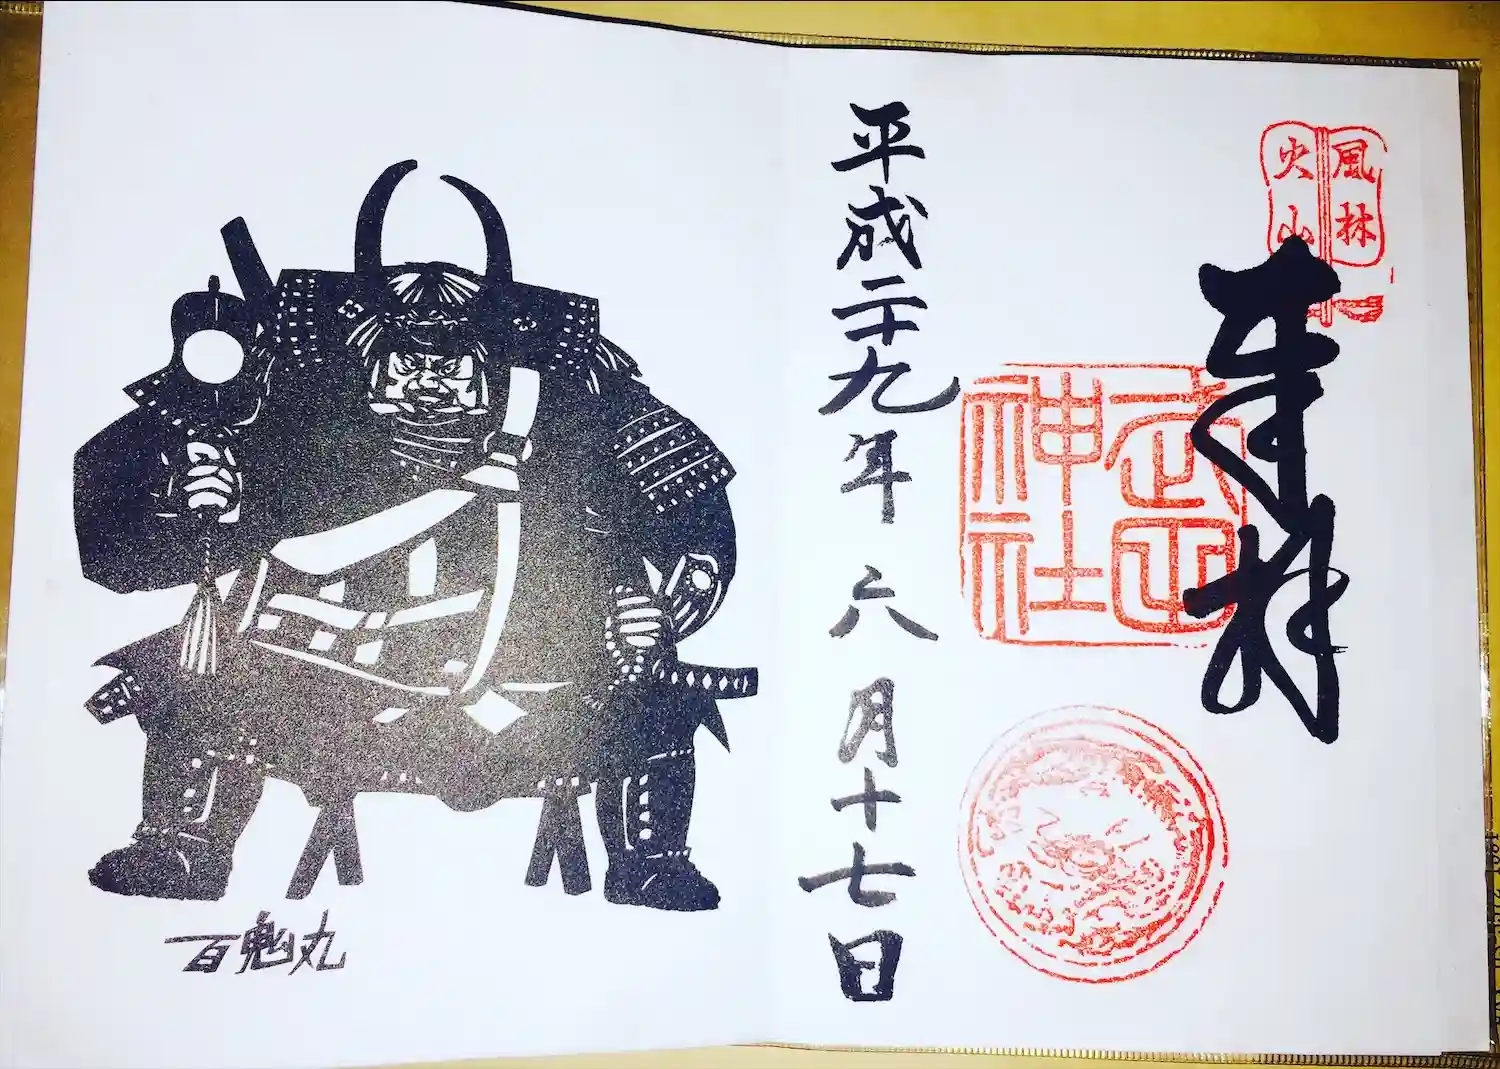 風林
火山
奉拝
武田
神社
平成二十九年六月十七日
百鬼丸